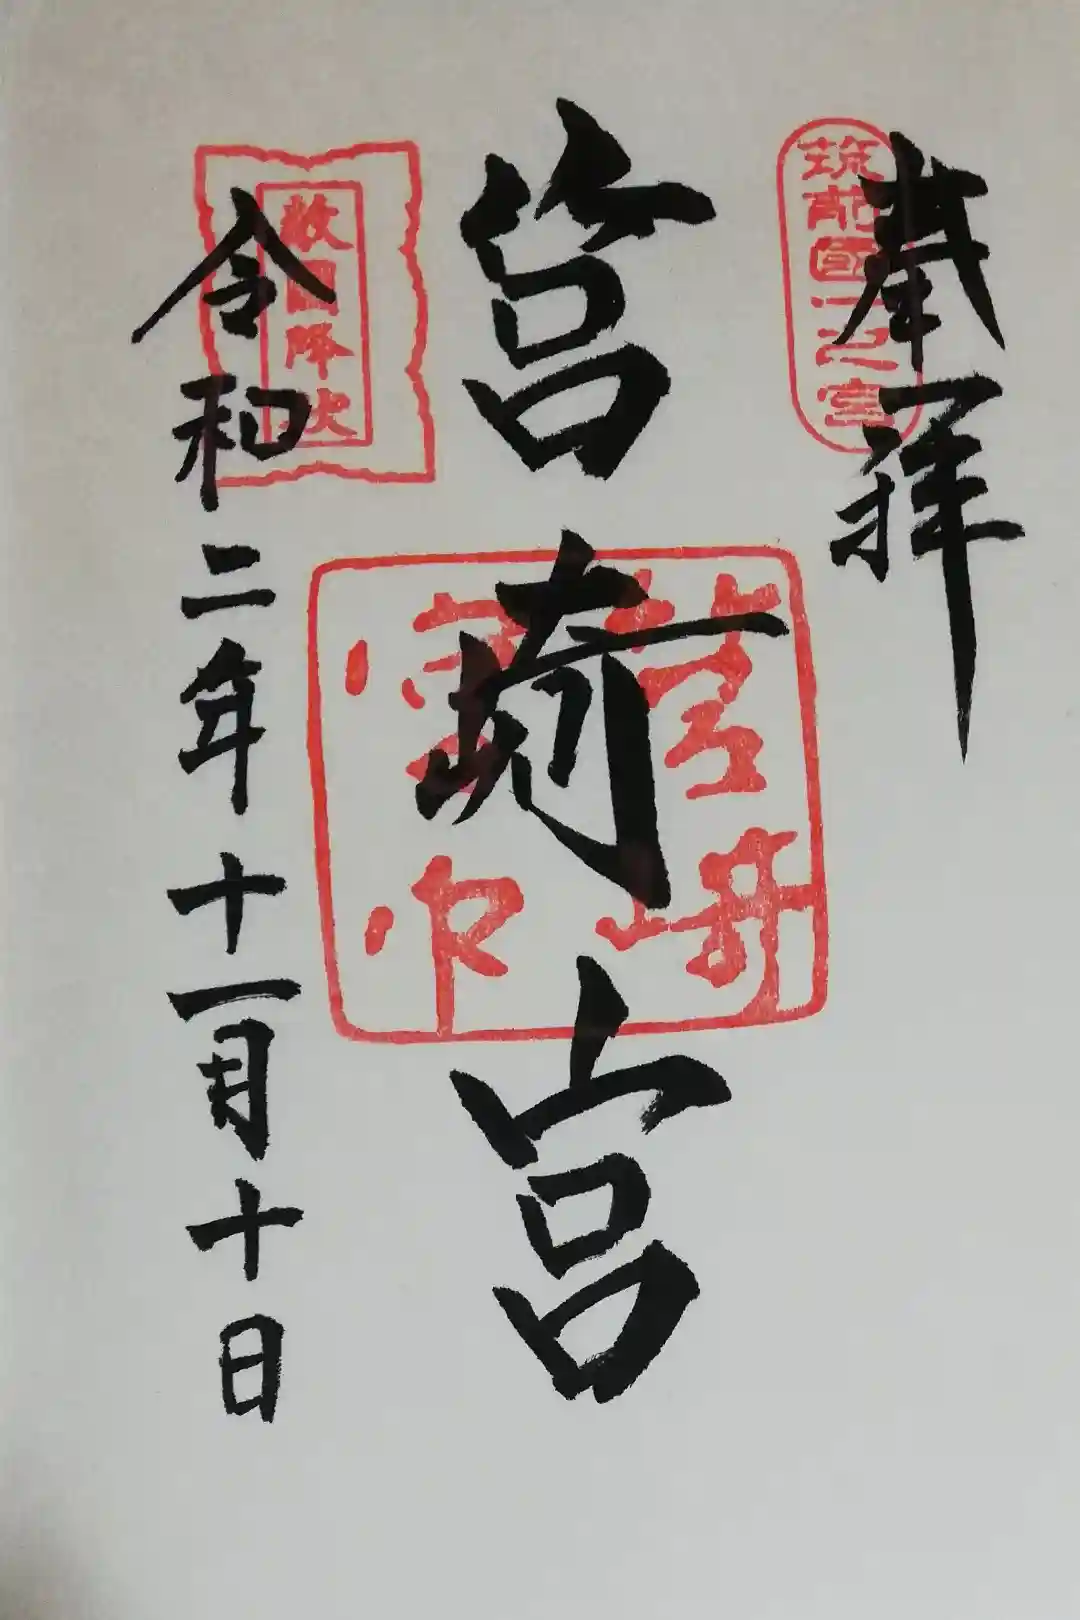 奉拝
筑前國一之宮
筥崎宮
筥崎
宮印
敵國降伏
令和二年十一月十日